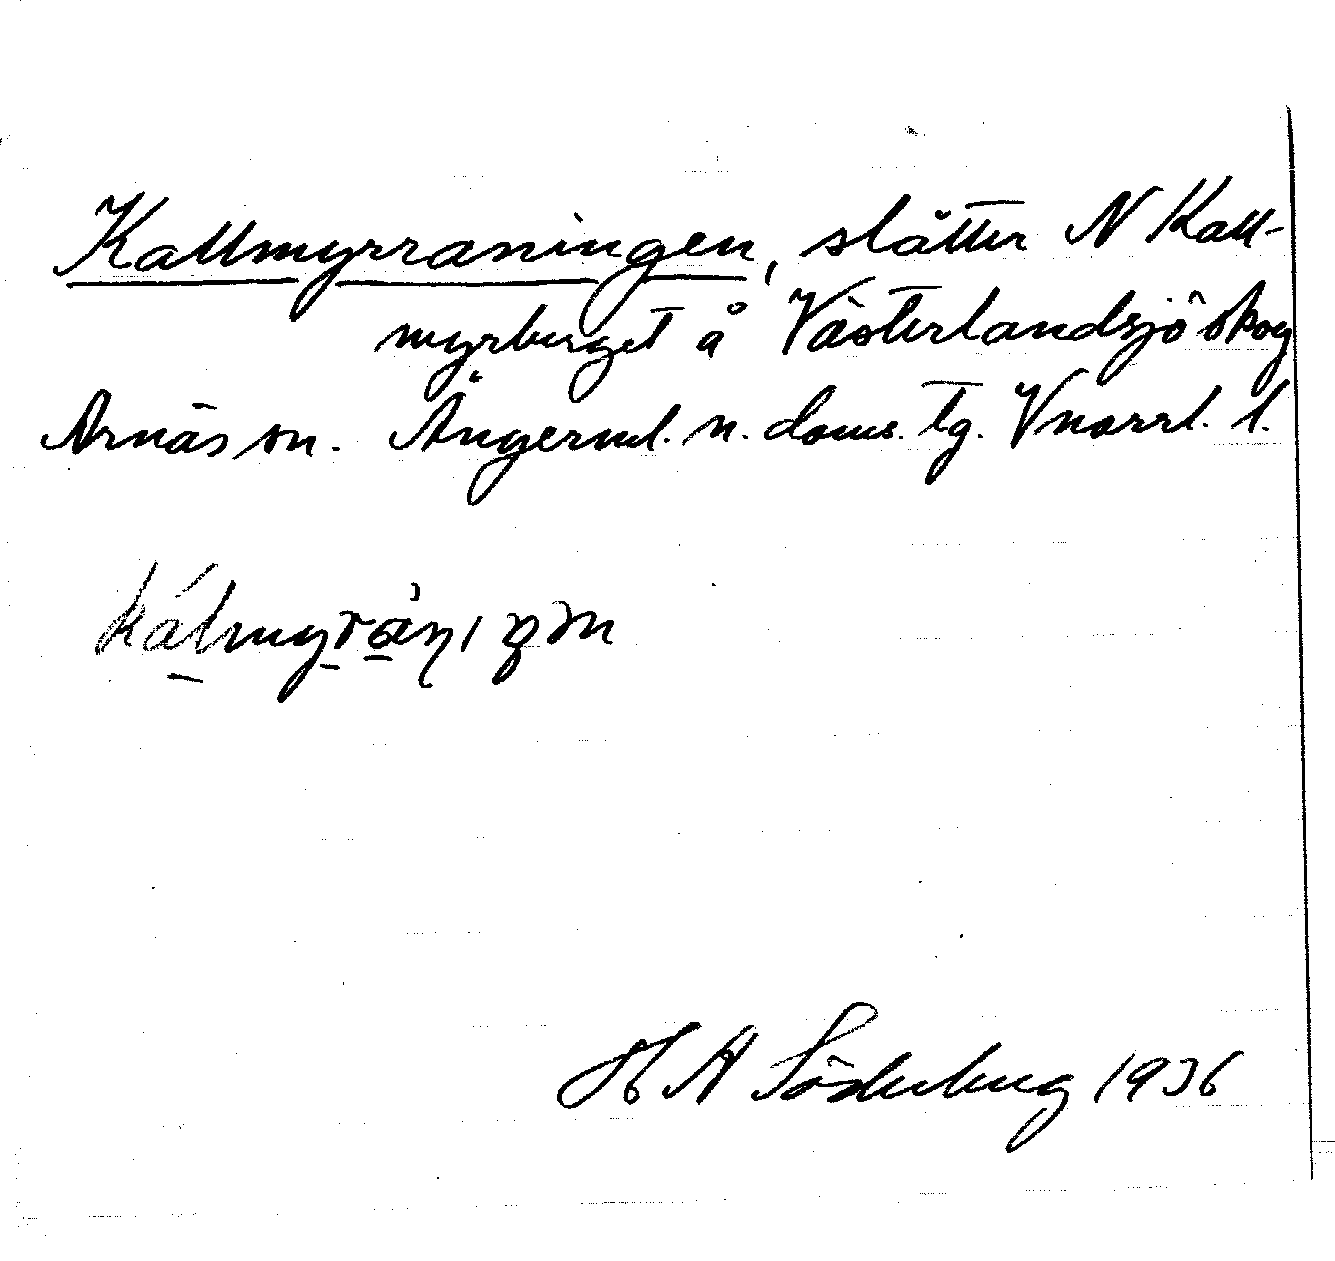 Kallmyrraningen, slåtter N Kall-
myrberget å Västerlandsjö skog
Arnäs sn. Ångerml. n. doms. tg. Vnorrl. l.
H A Söderberg 1936